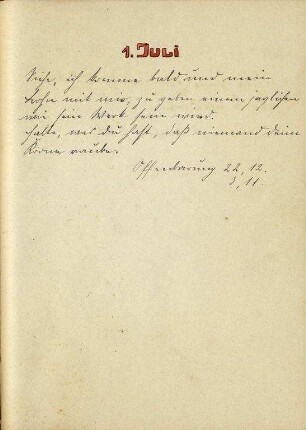 1. Juli
Siehe, ich komme bald und mein
Lohn mit mir, zu geben einem jeglichen
wie sein Werk sein wird.
Halte, was du hast, daß niemand deine
Krone raube.
Offenbarung 22, 12.
3, 11.